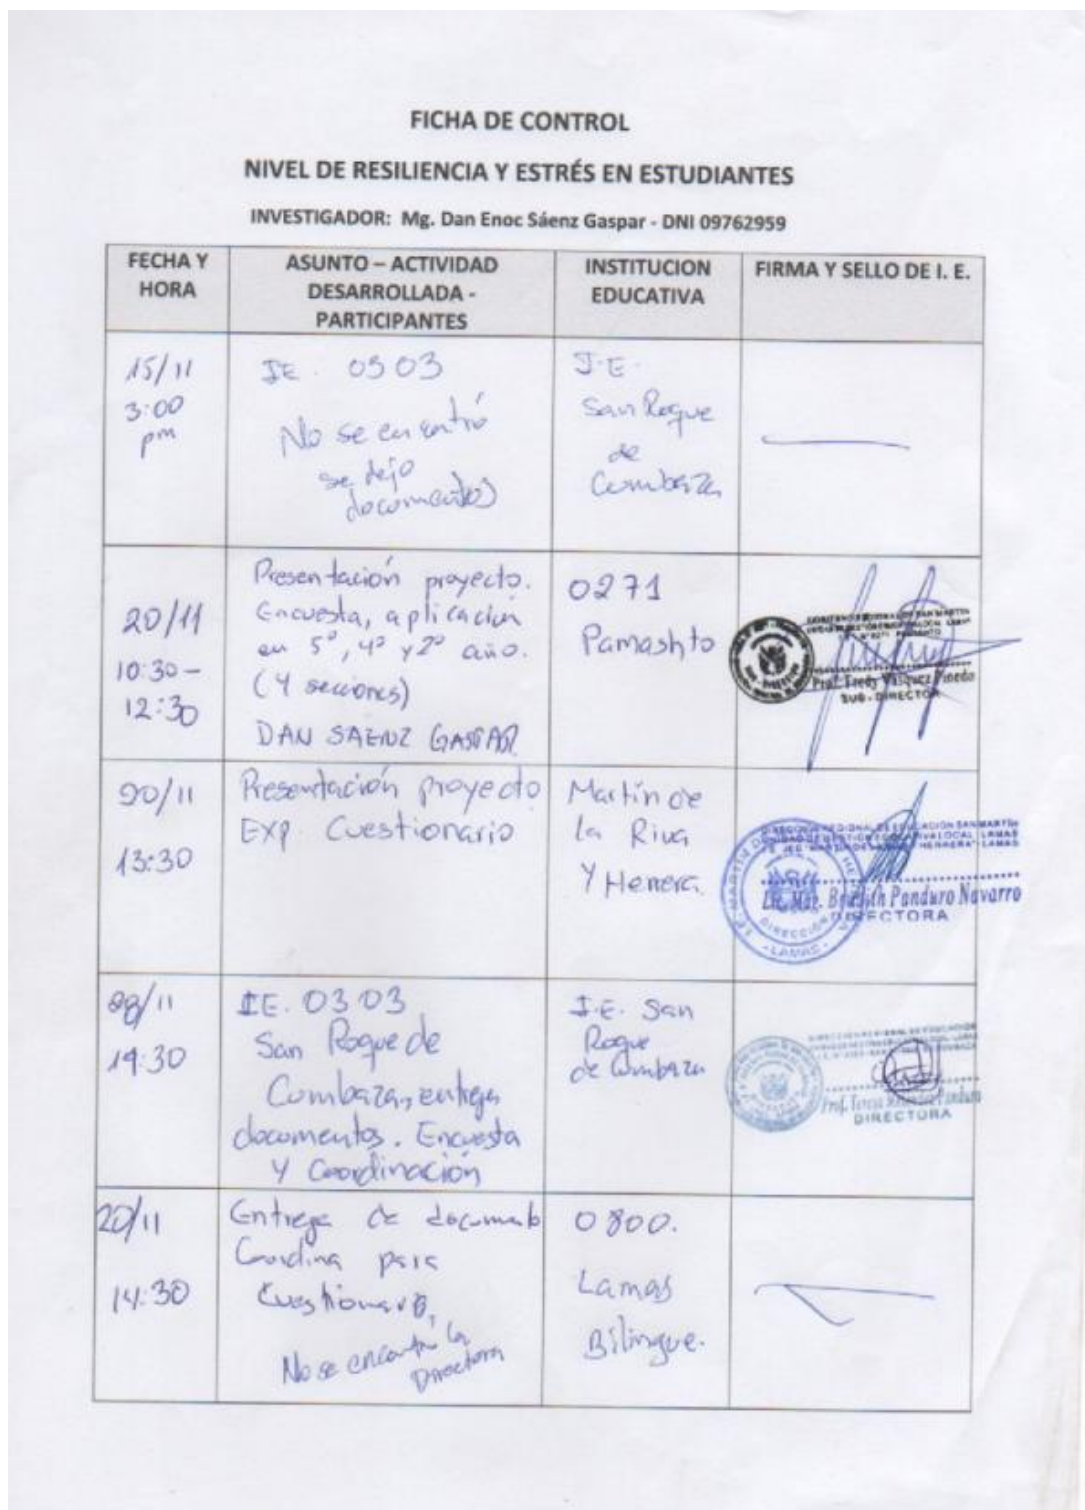 FICHA DE CONTROL
NIVEL DE RESILIENCIA Y ESTRÉS EN ESTUDIANTES
INVESTIGADOR: Mg. Dan Enoc Sáenz Gaspar - DNI 09762959
FECHA Y
HORA
ASUNTO – ACTIVIDAD
DESARROLLADA -
PARTICIPANTES
INSTITUCION
EDUCATIVA
FIRMA Y SELLO DE I. E.
15/11
3:00
pm
IE. 0303
No se encontró
se dejo
documentos
I.E.
San Roque
de
Cumbaza
20/11
10:30 –
12:30
Presentación proyecto.
Encuesta, aplicación
en 5º, 4º y 2º año.
(4 secciones)
DAN SAENZ GASPAR
0271
Pamashto
Prof. Fredy Vásquez Pinedo
SUB - DIRECTOR
20/11
13:30
Presentación proyecto
EXP. Cuestionario
Martín de
la Riva
Y Herrera.
DIRECCIÓN
- LAMAS -
Panduro Navarro
DIRECTORA
/11
14:30
IE. 0303
San Roque de
Cumbaza, entrega
documentos. Encuesta
y Coordinación
I.E. San
Roque
de Cumbaza
Prof. Teresa Panduro
DIRECTORA
20/11
14:30
Entrega de documento
Coordina para
Cuestionario,
No se encontró la
Directora
0800.
Lamas
Bilingue.